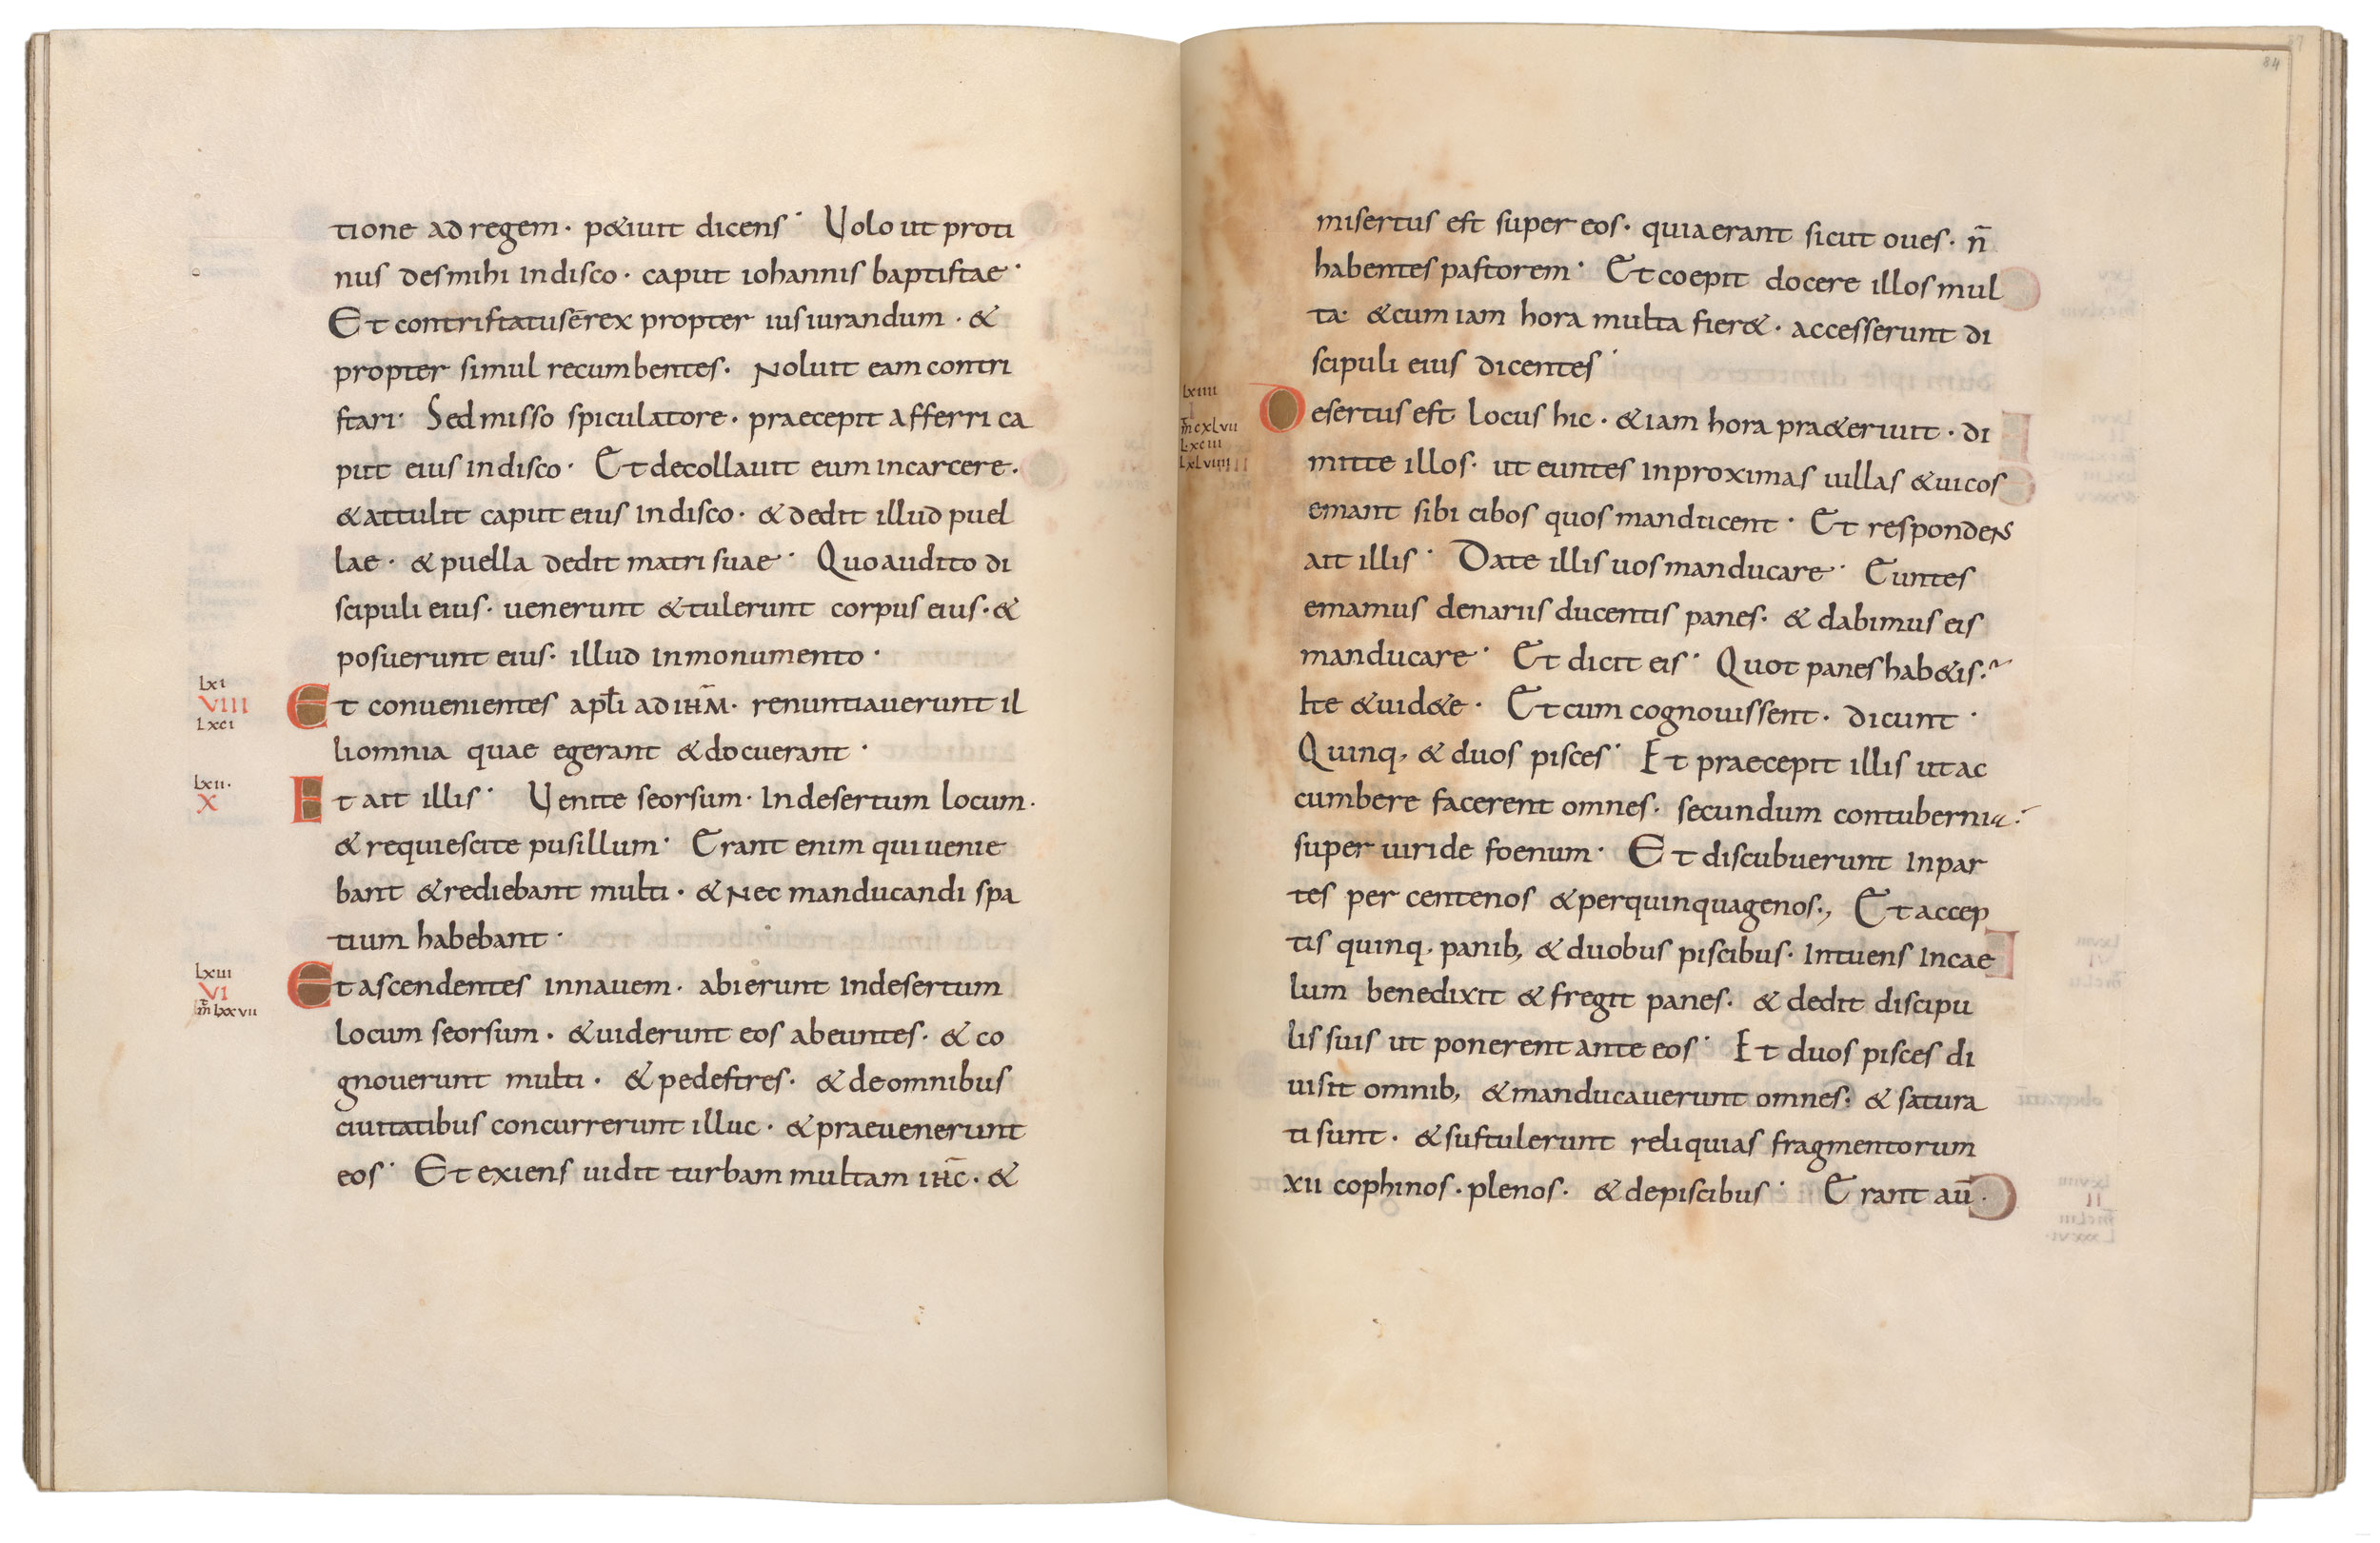 tione ad regem · p&iuit dicens · Uolo ut proti
nus des mihi in disco · caput iohannis baptistae ·
Et contristatus ē rex propter ius iurandum · &
propter simul recumbentes · Noluit eam contri
stari · Sed misso spiculatore · praecepit afferri ca
put eius in disco · Et decollauit eum in carcere ·
& attulit caput eius in disco · & dedit illud puel
lae · & puella dedit matri suae · Quo audito di
scipuli eius · uenerunt & tulerunt corpus eius · &
posuerunt eius · illud in monumento ·
lxi
VIII
lxci
Et conuenientes apłi ad ihm̄ · renuntiauerunt il
li omnia quae egerant & docuerant ·
lxii ·
X
Et ait illis · Uenite seorsum · In desertum locum ·
& requiescite pusillum · Erant enim qui uenie
bant & rediebant multi · & Nec manducandi spa
tium habebant ·
lxiii
VI
m̄ lxxvii
Et ascendentes in nauem · abierunt in desertum
locum seorsum · & uiderunt eos abeuntes · & co
gnouerunt multi · & pedestres · & de omnibus
ciuitatibus concurrerunt illuc · & praeuenerunt
eos · Et exiens uidit turbam multam ihc̄ · &
84
misertus est super eos · quia erant sicut oues · n̄
habentes pastorem · Et coepit docere illos mul
ta · & cum iam hora multa fier& · accesserunt di
scipuli eius dicentes ·
lxiiii
I
m̄ cxlvii
lxciii
lxlviiii
Desertus est locus hic · & iam hora pra&eriuit · di
mitte illos · ut euntes in proximas uillas & uicos
emant sibi cibos quos manducent · Et respondens
ait illis · Date illis uos manducare · Euntes
emamus denariis ducentis panes · & dabimus eis
manducare · Et dicit eis · Quot panes hab&is ·
Ite & uid&e · Et cum cognouissent · dicunt ·
Quinq, & duos pisces · Et praecepit illis ut ac
cumbere facerent omnes · secundum contubernia ·
super uiride foenum · Et discubuerunt in par
tes per centenos & per quinquagenos ., Et accep
tis quinq, panib, & duobus piscibus · Intuens in cae
lum benedixit & fregit panes · & dedit discipu
lis suis ut ponerent ante eos · Et duos pisces di
uisit omnib, & manducauerunt omnes · & satura
ti sunt · & sustulerunt reliquias fragmentorum
xii cophinos · plenos · & de piscibus · Erant aū ·